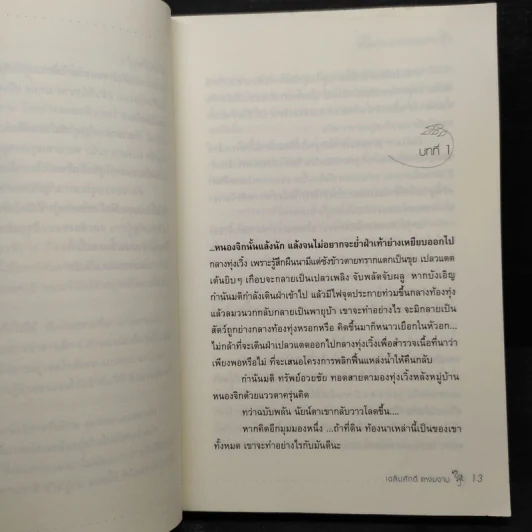 บทที่ 1
...หนองจิกนั้นแล้งนัก แล้งจนไม่อยากจะย่ำฝ่าเท้าย่างเหยียบออกไป
กลางทุ่งเวิ้ง เพราะรู้สึกผืนนามีแต่ซังข้าวตายซากแดกเป็นขุย เปลวแดด
เต้นยิบๆ เกือบจะกลายเป็นเปลวเพลิง จับพลัดจับผลู หากบังเอิญ
กำนันมดิกำลังเดินฝ่าเข้าไป แล้วมีไฟจุดประกายท่วมขึ้นกลางท้องทุ่ง
แล้วลมวนวกกลับกลายเป็นพายุบ้า เขาจะทำอย่างไร จะมิกลายเป็น
สัตว์ถูกย่างกลางท้องทุ่งหรอกหรือ คิดขึ้นมาก็หนาวเยือกในหัวอก...
ไม่กล้าที่จะเดินฝ่าเปลวแดดออกไปกลางทุ่งเวิ้งเพื่อสำรวจเนื้อที่นาว่า
เพียงพอหรือไม่ ที่จะเสนอโครงการพลิกฟื้นแหล่งน้ำให้คืนกลับ
กำนันมดิ ทรัพย์อวยชัย ทอดสายตามองทุ่งเวิ้งหลังหมู่บ้าน
หนองจิกด้วยแววตาครุ่นคิด
ทว่าฉับพลัน นัยน์ตาเขากลับวาวโลดขึ้น....
หากคิดอีกมุมมองหนึ่ง ...ถ้าที่ดิน ท้องนาเหล่านี้เป็นของเขา
ทั้งหมด เขาจะทำอย่างไรกับมันดีนะ
เฉลิมศักดิ์ แหงมงาม 13